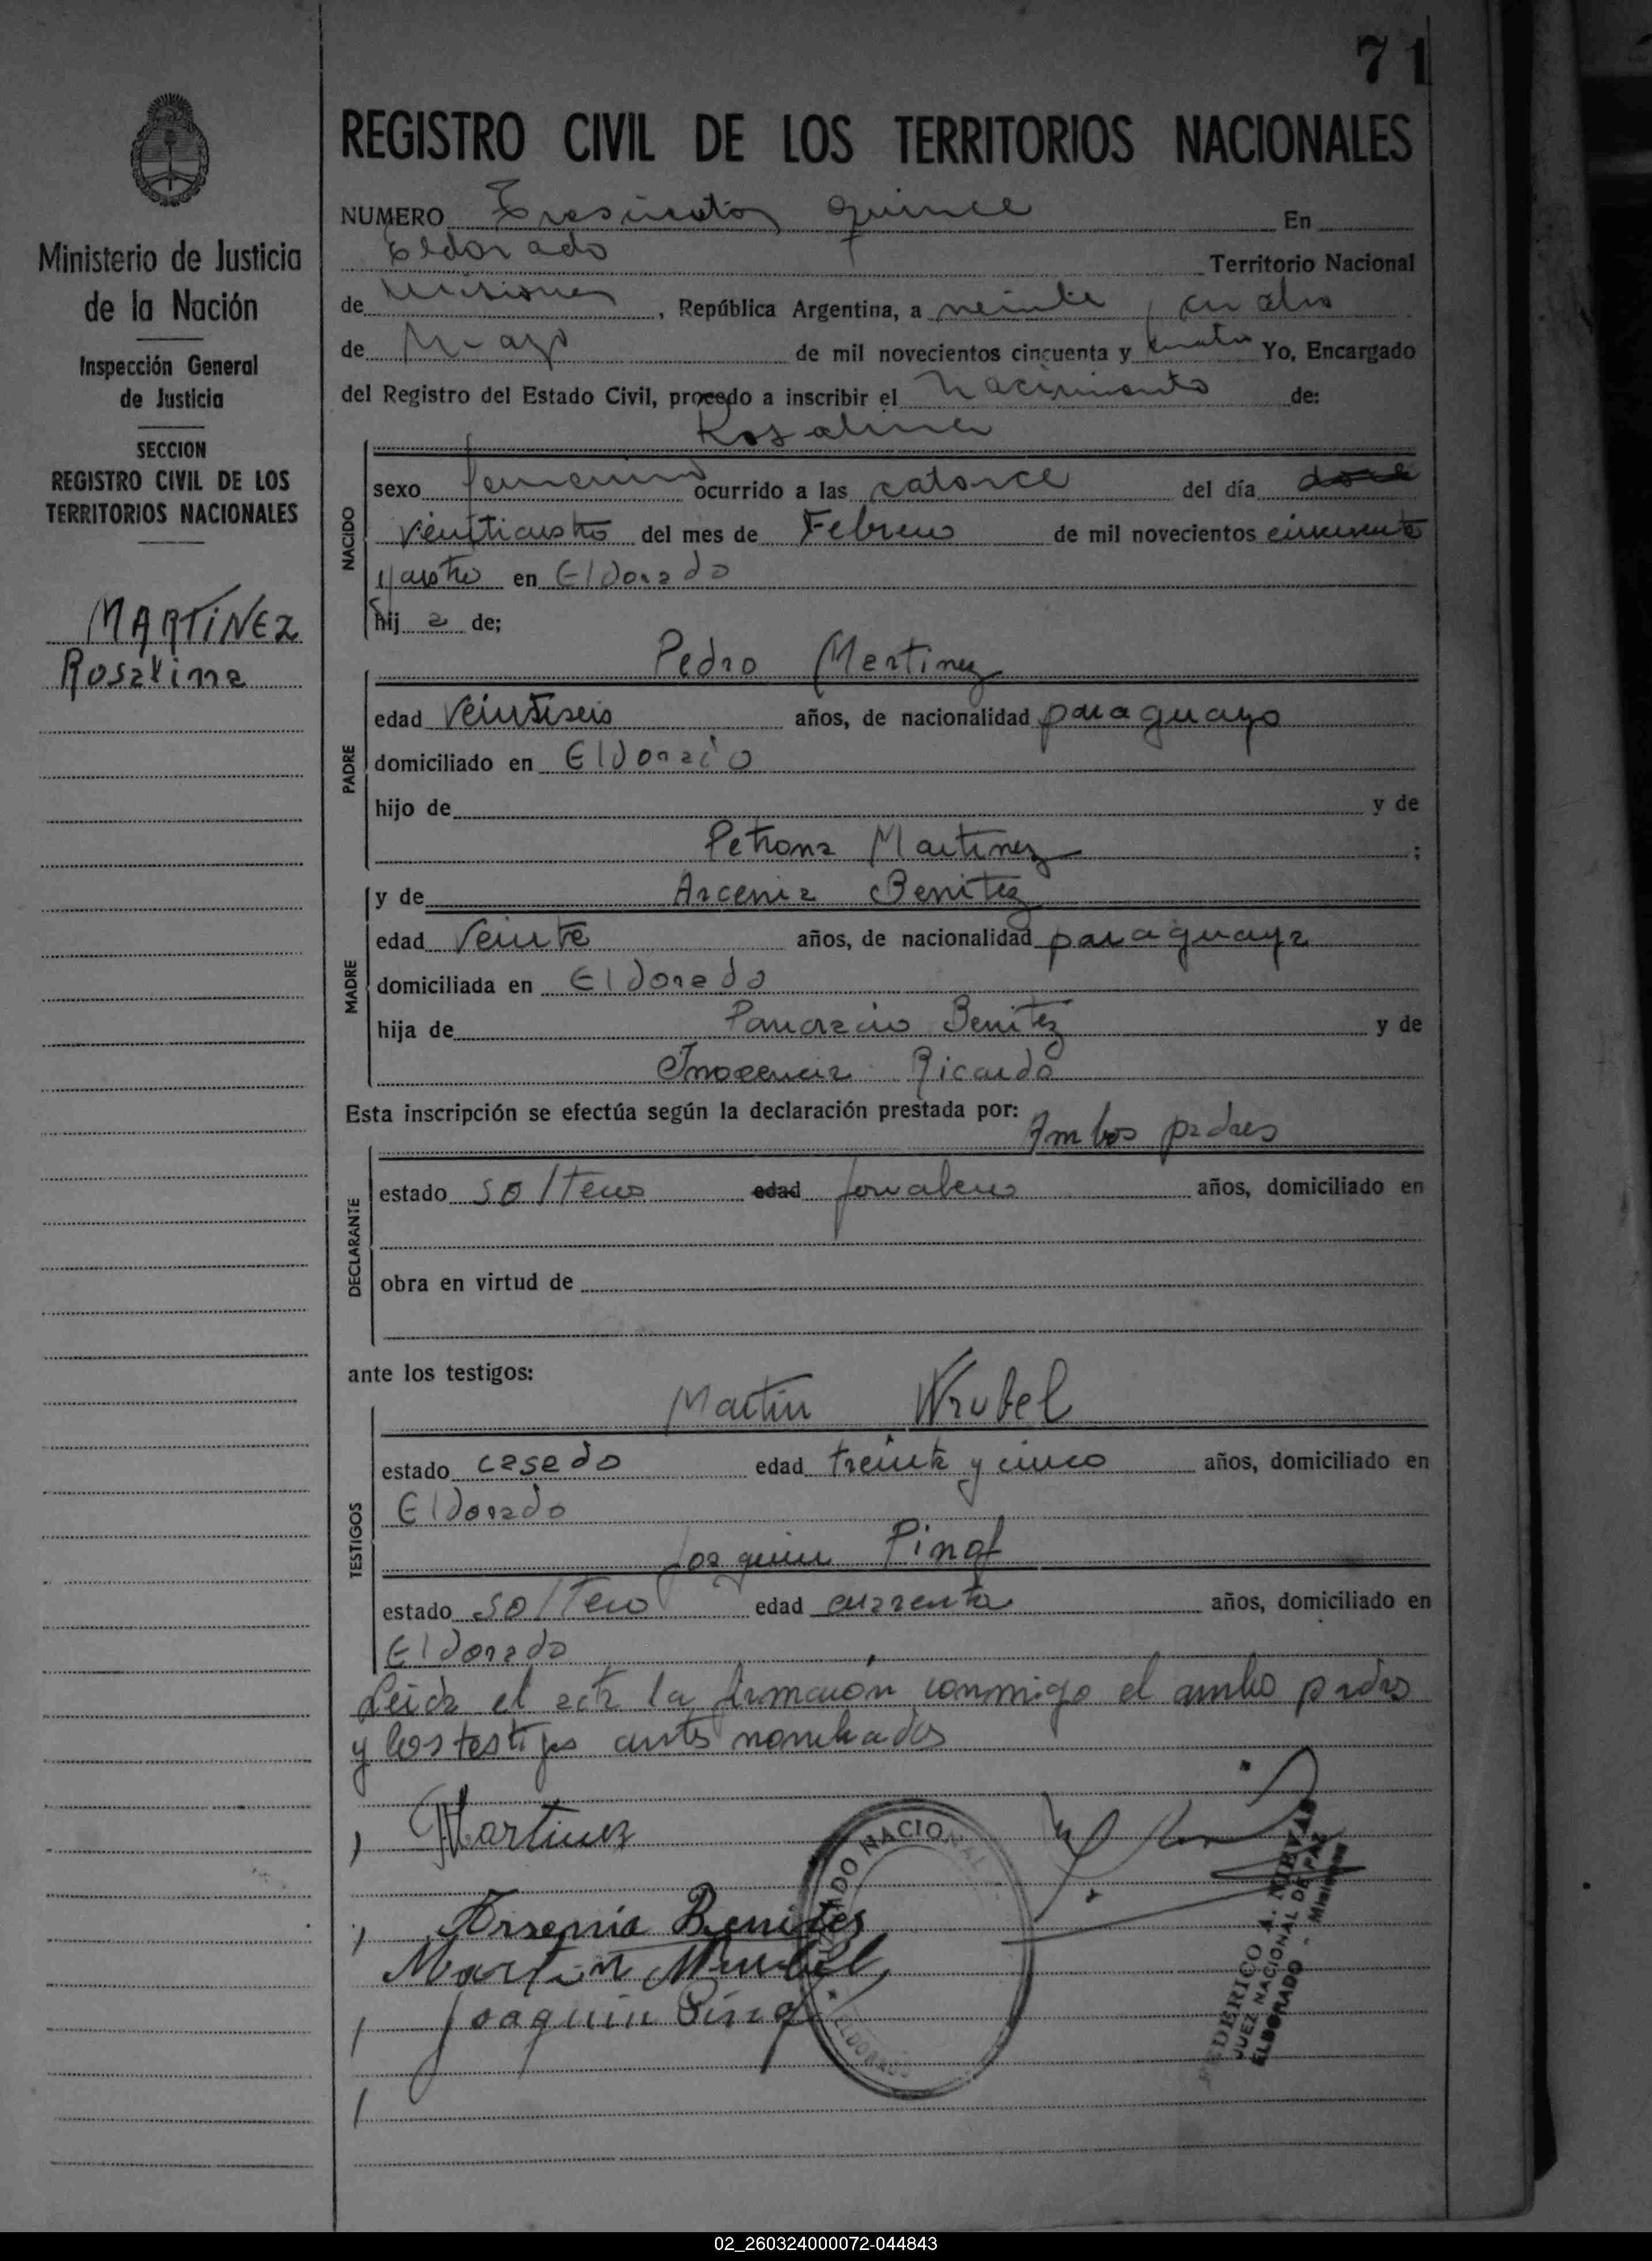 71
REGISTRO CIVIL DE LOS TERRITORIOS NACIONALES
Ministerio de Justicia
de la Nación
Inspección General
de Justicia
SECCION
REGISTRO CIVIL DE LOS
TERRITORIOS NACIONALES
MARTINEZ
Rosalina
NUMERO Trescientos quince En
Eldorado Territorio Nacional
de Misiones, República Argentina, a veinte y cuatro
de Mayo de mil novecientos cincuenta y cuatro Yo, Encargado
del Registro del Estado Civil, procedo a inscribir el nacimiento de:
Rosalina
NACIDO
sexo femenino ocurrido a las catorce del día doce
veinticuatro del mes de Febrero de mil novecientos cincuenta
y cuatro en Eldorado
hij a de;
Pedro Martinez
PADRE
edad veintiseis años, de nacionalidad paraguayo
domiciliado en Eldorado
hijo de y de
Petrona Martinez ;
y de Arcenia Benitez
MADRE
edad veinte años, de nacionalidad paraguaya
domiciliada en Eldorado
hija de Pancracio Benitez y de
Inocencia Ricardo
Esta inscripción se efectúa según la declaración prestada por:
Ambos padres
DECLARANTE
estado solteros edad jornalero años, domiciliado en
obra en virtud de
ante los testigos:
Martin Wrubel
TESTIGOS
estado casado edad treinta y cinco años, domiciliado en
Eldorado
Joaquin Pinat
estado soltero edad cuarenta años, domiciliado en
Eldorado
Leida el acta la firmaron conmigo el ambo padres
y los testigos antes nombrados
Martinez
Arsenia Benites
Martin Wrubel
Joaquin Pinat
JUZGADO NACIONAL
ELDORADO
FEDERICO A. NIEVAS
JUEZ NACIONAL DE PAZ
ELDORADO - Misiones
02_260324000072-044843